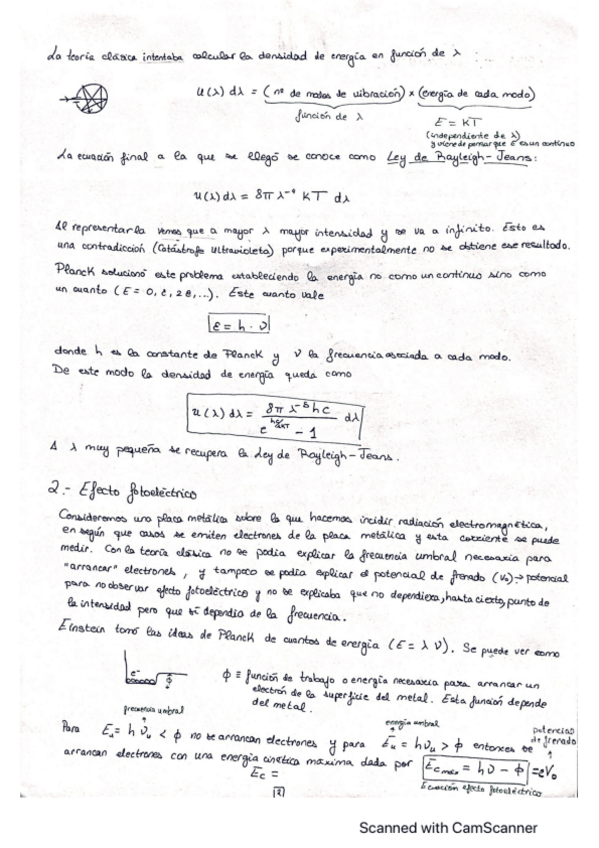 La teoría clásica intentaba calcular la densidad de energía en función de λ
u(λ) dλ = (nº de modos de vibración) x (energía de cada modo)
función de λ
E = KT
(independiente de λ)
y viene de pensar que E es un continuo
La ecuación final a la que se llegó se conoce como Ley de Rayleigh-Jeans:
u(λ) dλ = 8π λ⁻⁴ KT dλ
Al representarla vemos que a mayor λ mayor intensidad y se va a infinito. Esto es
una contradicción (Catástrofe ultravioleta) porque experimentalmente no se obtiene ese resultado.
Planck solucionó este problema estableciendo la energía no como un continuo sino como
un cuanto (E = 0, ε, 2ε, ...). Este cuanto vale
ε = h · ν
donde h es la constante de Planck y ν la frecuencia asociada a cada modo.
De este modo la densidad de energía queda como
u(λ) dλ = 8π λ⁻⁵ hc / e^(hc/λKT) - 1 dλ
A λ muy pequeña se recupera la Ley de Rayleigh-Jeans.
2.- Efecto fotoeléctrico
Consideremos una placa metálica sobre la que hacemos incidir radiación electromagnética,
en según que casos se emiten electrones de la placa metálica y esta corriente se puede
medir. Con la teoría clásica no se podía explicar la frecuencia umbral necesaria para
"arrancar" electrones, y tampoco se podía explicar el potencial de frenado (V₀) → potencial
para no observar efecto fotoeléctrico y no se explicaba que no dependiera, hasta cierto, punto de
la intensidad pero que sí dependía de la frecuencia.
Einstein tomó las ideas de Planck de cuantos de energía (E = λ ν). Se puede ver como
e⁻
ϕ
ϕ ≡ función de trabajo o energía necesaria para arrancar un
electrón de la superficie del metal. Esta función depende
del metal.
frecuencia umbral
energía umbral
potencial de frenado
Para E = h ν < ϕ no se arrancan electrones y para Eᵤ = h νᵤ > ϕ entonces se
arrancan electrones con una energía cinética máxima dada por Ec max = hν - ϕ = eV₀
Ec =
Ecuación efecto fotoeléctrico
Scanned with CamScanner